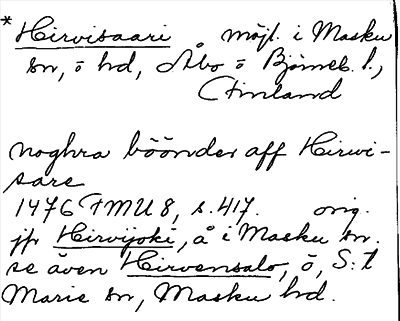 * Hirvisaari möjl. i Masku
sn, o hd, Åbo o Björneb. l.,
Finland
noghra böönder aff Hirwi-
sare
1476 FMU 8, s. 417. orig.
jfr Hirvijoki, å i Masku sn.
se även Hirvensalo, ö, S:t
Marie sn, Masku hd.